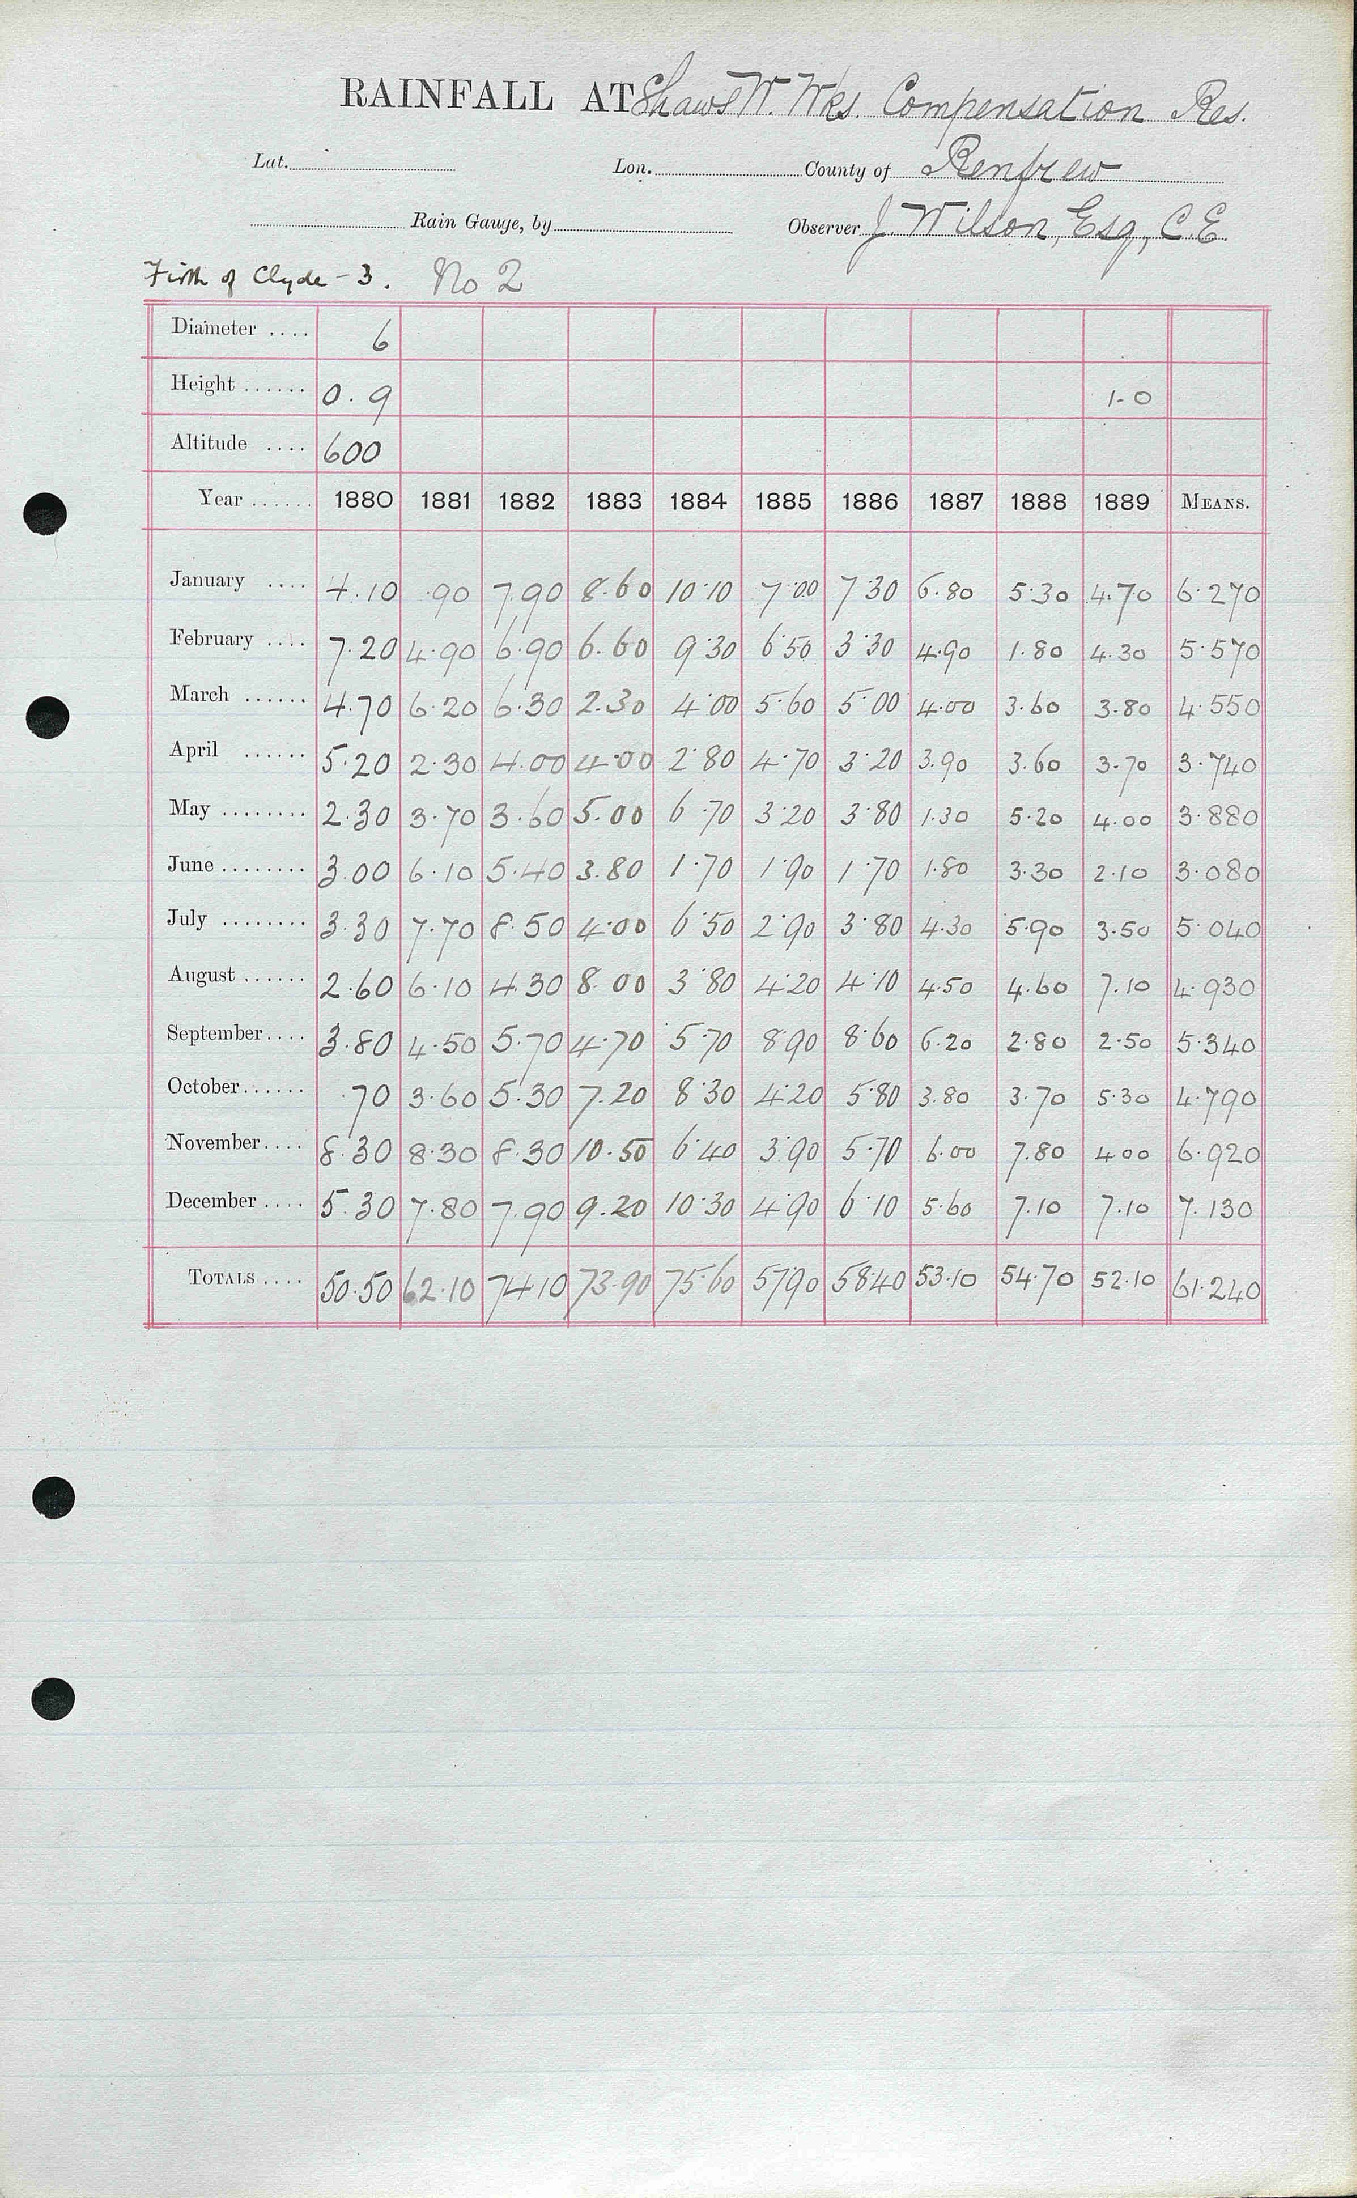 RAINFALL AT Shaws W. Wks. Compensation Res.
Lat. Lon. County of Renfrew
Rain Gauge, by Observer J. Wilson, Esq, C.E
Firth of Clyde - 3. No 2
Diameter .... 6
Height ...... 0.9 1.0
Altitude .... 600
Year ...... 1880 1881 1882 1883 1884 1885 1886 1887 1888 1889 MEANS.
January .... 4.10 .90 7.90 8.60 10.10 7.00 7.30 6.80 5.30 4.70 6.270
February .... 7.20 4.90 6.90 6.60 9.30 6.50 3.30 4.90 1.80 4.30 5.570
March ...... 4.70 6.20 6.30 2.30 4.00 5.60 5.00 4.00 3.60 3.80 4.550
April ...... 5.20 2.30 4.00 4.00 2.80 4.70 3.20 3.90 3.60 3.70 3.740
May ........ 2.30 3.70 3.60 5.00 6.70 3.20 3.80 1.30 5.20 4.00 3.880
June ........ 3.00 6.10 5.40 3.80 1.70 1.90 1.70 1.80 3.30 2.10 3.080
July ........ 3.30 7.70 8.50 4.00 6.50 2.90 3.80 4.30 5.90 3.50 5.040
August ...... 2.60 6.10 4.30 8.00 3.80 4.20 4.10 4.50 4.60 7.10 4.930
September .... 3.80 4.50 5.70 4.70 5.70 8.90 8.60 6.20 2.80 2.50 5.340
October ...... .70 3.60 5.30 7.20 8.30 4.20 5.80 3.80 3.70 5.30 4.790
November .... 8.30 8.30 8.30 10.50 6.40 3.90 5.70 6.00 7.80 4.00 6.920
December .... 5.30 7.80 7.90 9.20 10.30 4.90 6.10 5.60 7.10 7.10 7.130
TOTALS .... 50.50 62.10 74.10 73.90 75.60 57.90 58.40 53.10 54.70 52.10 61.240